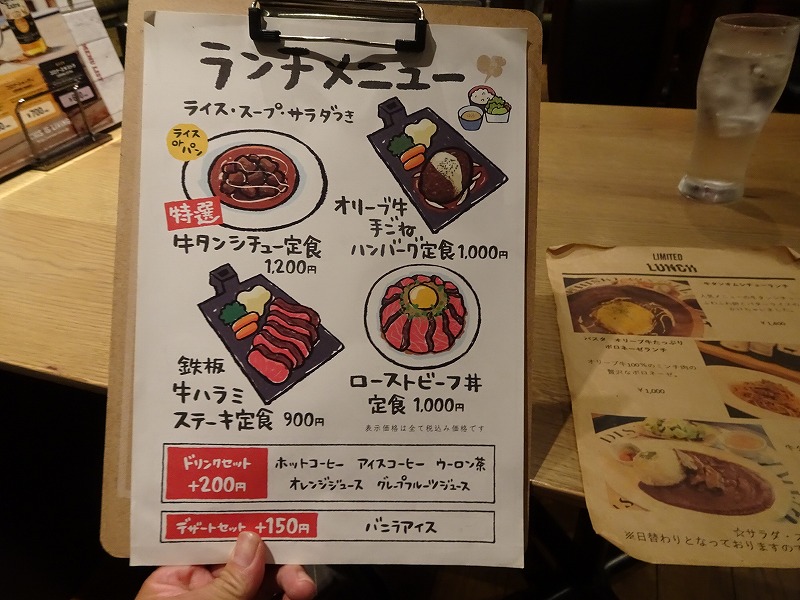 ランチメニュー
ライス・スープ・サラダつき
ライス
or
パン
特選
牛タンシチュー定食
1,200円
オリーブ牛
手ごね
ハンバーグ定食 1,000円
鉄板
牛ハラミ
ステーキ定食 900円
ローストビーフ丼
定食 1,000円
表示価格は全て税込み価格です
ドリンクセット
+200円
ホットコーヒー アイスコーヒー ウーロン茶
オレンジジュース グレープフルーツジュース
デザートセット +150円
バニラアイス
LIMITED
LUNCH
¥1,800
パスタ オリーブ牛たっぷり
ボロネーゼランチ
オリーブ牛100%のミンチ肉の
贅沢なボロネーゼ。
¥1,000
☆サラダ・ス
※日替わりとなっておりますので